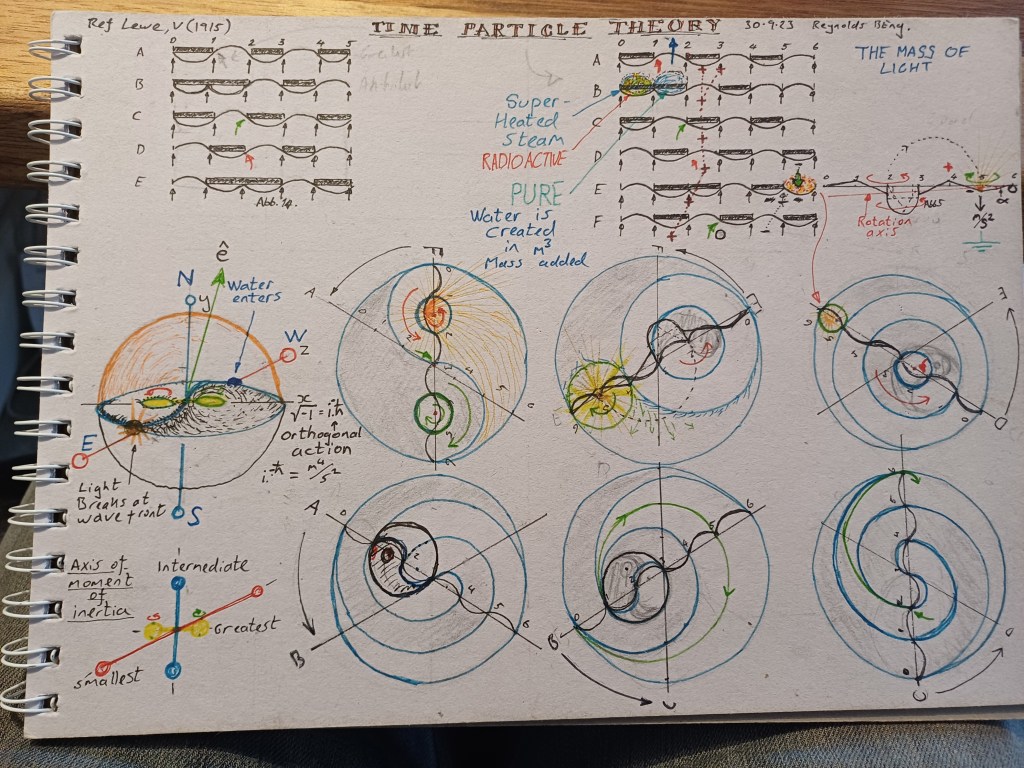 Ref Lewe, V (1915)
TIME PARTICLE THEORY
30-9-23 Reynolds BEng.
THE MASS OF
LIGHT
0 1 2 3 4 5
A
B
C
D
E
Abb. 19.
Greatest
0 1 2 3 4 5 6
A
B
C
D
E
F
Super-
Heated
Steam
RADIOACTIVE
PURE
Water is
Created
in M³
Mass added
0 1 2 3 4 5 6
Rotation
axis
m/s²
N
ê
y
Water
enters
W
z
E
S
Light
Breaks at
wave front
x
√-1 = i.ħ
orthogonal
action
i.ħ = m⁴/s²
Axis of
moment
of
inertia
Intermediate
Greatest
smallest
A
F
E
E
D
A
B
B
C
C